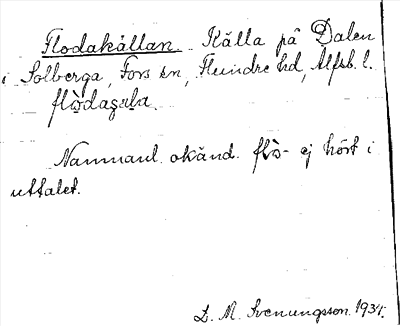 Flodakällan. Källa på Dalen
i Solberga, Fors sn, Flundre hd, Älfsb. l.
Namnanl. okänd. flò- ej hört i
uttalet.
L. M. Svenungsson. 1934.